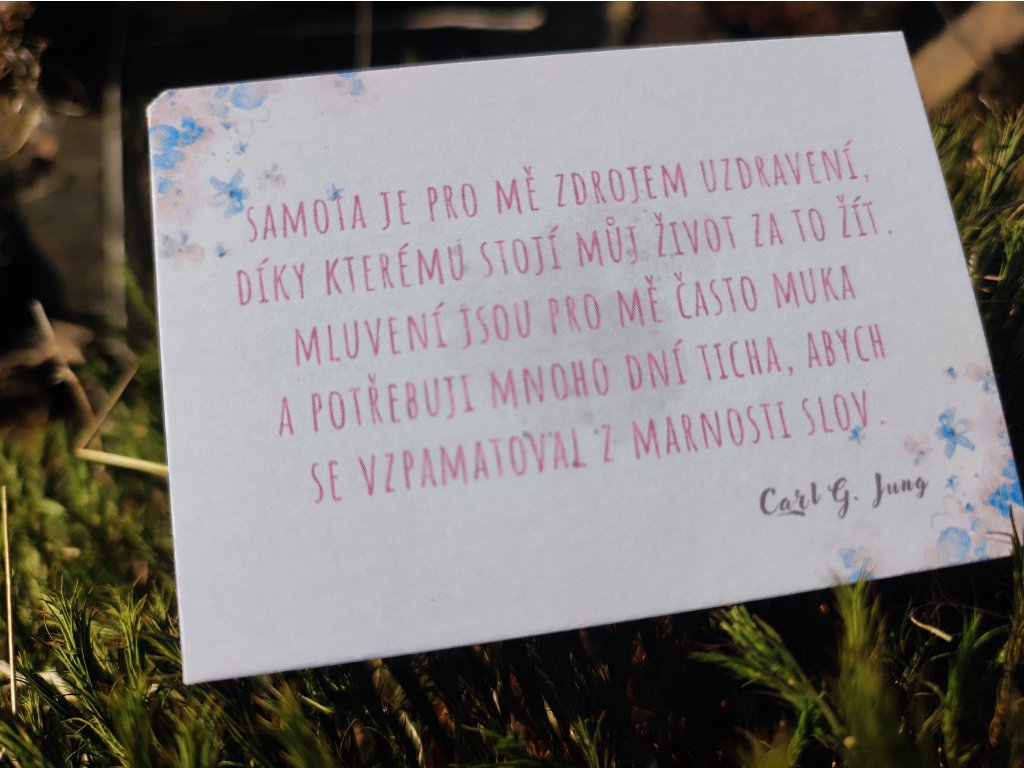 SAMOTA JE PRO MĚ ZDROJEM UZDRAVENÍ,
DÍKY KTERÉMU STOJÍ MŮJ ŽIVOT ZA TO ŽÍT.
MLUVENÍ JSOU PRO MĚ ČASTO MUKA
A POTŘEBUJI MNOHO DNÍ TICHA, ABYCH
SE VZPAMATOVAL Z MARNOSTI SLOV.
Carl G. Jung